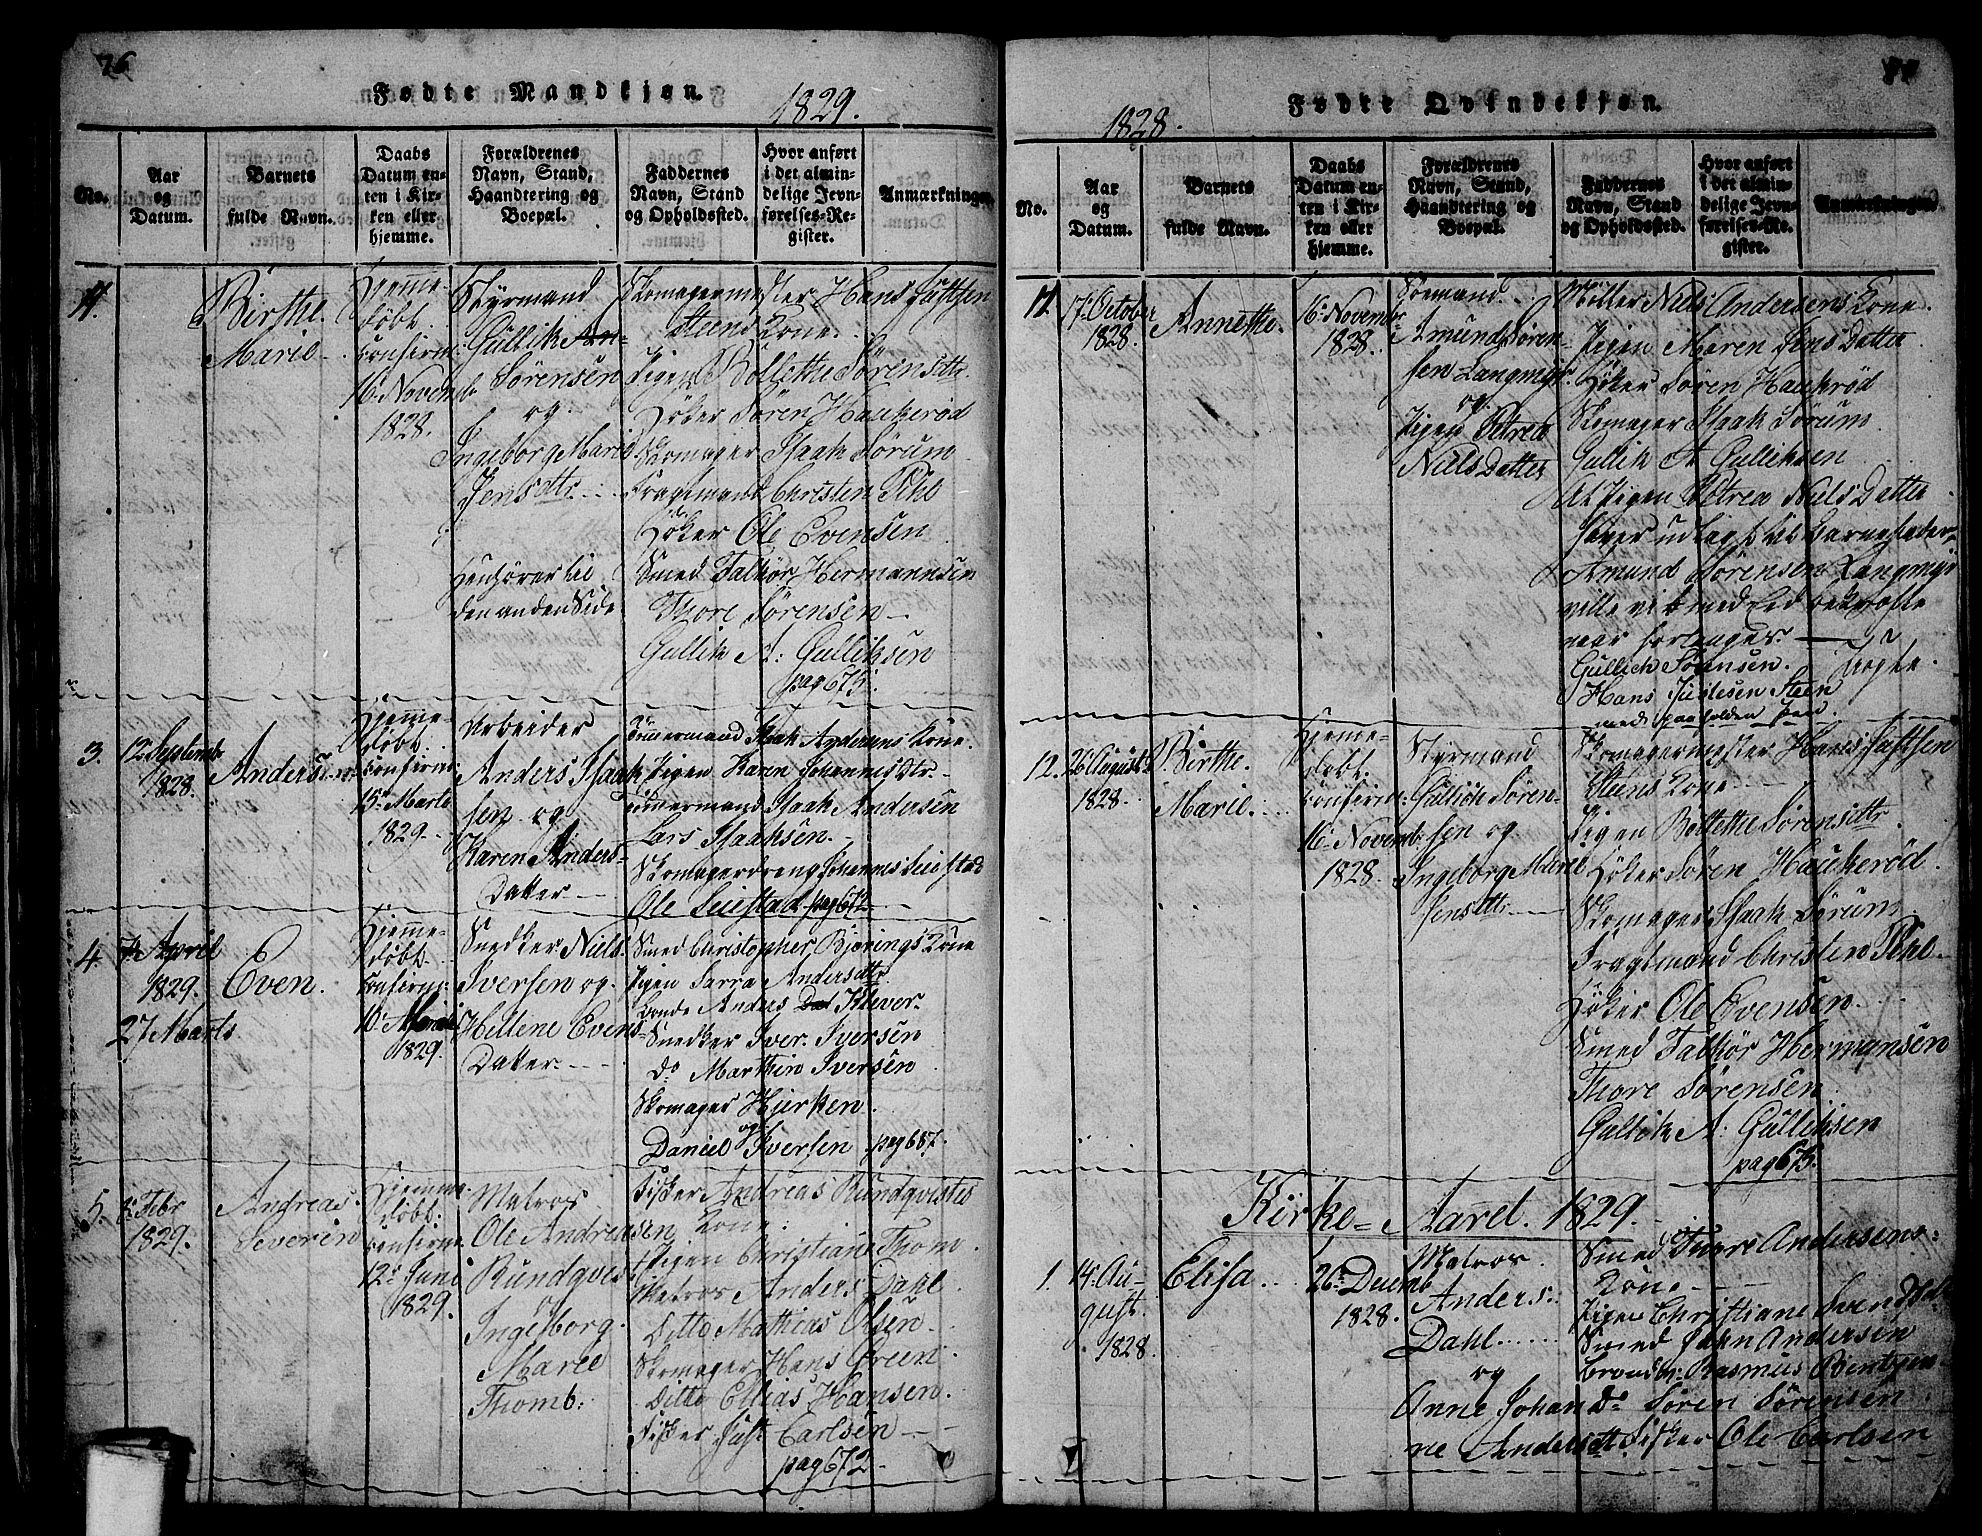 76
Fødte Mandkjøn.
1829.
No.
Aar
og
Datum.
Barnets
fulde Navn.
Daabs
Datum en-
ten i Kir-
ken eller
hjemme.
Forældrenes
Navn, Stand,
Haandtering og
Boepæl.
Faddernes
Navn, Stand
og Opholdsted.
Hvor anført
i det almin-
delige Jevn-
førelses-Re-
gister.
Anmærkninger
Birthe
Marie
Hjemme-
døbt.
Confirm:
16 Novemb
1828.
Styrmand
Gullik An-
Sörensen
og
Ingeborg Marie
Jensdtr
Henhörer til
den anden Side
Skomagermester Hans Justsen
Steens Kone.
Pigen Bollethe Sörensdtr.
Höker Sören Haukeröd
Skomager Isaak Sörum
Fragtmand Christen Pihl
Höker Ole Evensen
Smed Falkör Hermannsen
Thore Sörensen
Gullik A: Gulliksen
pag 675.
3.
12 Septembr
1828.
Anders
Hjemme-
døbt.
Confirm:
15 Marts
1829.
Arbeider
Anders Isaak-
sen og
Karen Anders-
Datter
Tömmermand Isaak Andersens Kone.
Pigen Karen Johannesdtr.
Tömmermand Isaak Andersen
Lars Isaaksen.
Skomagerdreng Johannes Seiestad
Ole Seiestad pag 672
4.
April
1829.
27 Marts
Even.
Hjemme-
døbt.
Confirm:
10
1829.
Snedker Niels
Iversen og
Hellene Evens-
Datter
Smed Christopher Bjerings Kone
Pigen Sarra Andersdtr
Bonde Anders Klever.
Snedker Iver Iversen
Do Marthin Iversen
Skomager Hierken.
Daniel og Iversen. pag 687.
5.
Febr
1829.
Andreas
Severin
Hjemme-
døbt.
Confirm:
12 Juni
1829.
Matros
Ole Andreasen
Rundqvist
og
Ingeborg
Maree
Thomb:
Fisker Andreas Rundqvistes
Kone.
Pigen Christiane Thom.
Matros Anders Dahl
Ditto Mathias Olsen
Skomager Hans Green
Ditto Ellias Hansen.
Fisker Just Carlsen
pag 672.
77
Fødte Qvindekjøn.
1828.
No.
Aar
og
Datum.
Barnets
fulde Navn.
Daabs
Datum en-
ten i Kir-
ken eller
hjemme.
Forældrenes
Navn, Stand,
Haandtering og
Boepæl.
Faddernes
Navn, Stand
og Opholdsted.
Hvor anført
i det almin-
delige Jevn-
førelses-Re-
gister.
Anmærkninger.
11.
17 October
1828.
Annethe.
16 Novembr
1828.
Sömand
Amund Sören-
sen Langmyr
og
Pigen Petrea
Niels Datter
Möller Niels Andersens Kone.
Pigen Maren Jens Datter
Höker Sören Haukröd
Skomager Isaak Sörum.
Gullik A Gulliksen
At Pigen Petrea Niels Datter
haver udlagt til Barnefader
Amund Sörensen Langmyr
ville vi med Eed bekræfte
naar forlanges.
Gullich Sörensen.
Hans Justesen Steen
med paaholden Pen.
12.
26 August
1828.
Birthe
Marie.
Hjemme-
døbt.
Confirm:
16 Novemb:
1828.
Styrmand
Gullich Sören-
sen og
Ingeborg Marie
Jensdtr
Skomagermester Hans Justsen
Steens Kone
Pigen Bollethe Sörensdtr.
Höker Sören Haukeröd.
Skomager Isaak Sörum.
Fragtmand Christen Pihl
Höker Ole Evensen.
Smed Falkör Hermansen
Thore Sörensen.
Gullik A: Gulliksen
pag 675.
Kirke-Aaret. 1829.
1.
14 Au-
gust.
1828.
Elisa.
26 Decemb
1828.
Matros
Anders
Dahl.
og
Anne Johan
ne Andersdtr
Smed Andersens
Kone
Pigen Christiane Svends
Smed John Andersen
Rasmus Bentsen
Do Sören Sörensen
Fisker Ole Carlsen